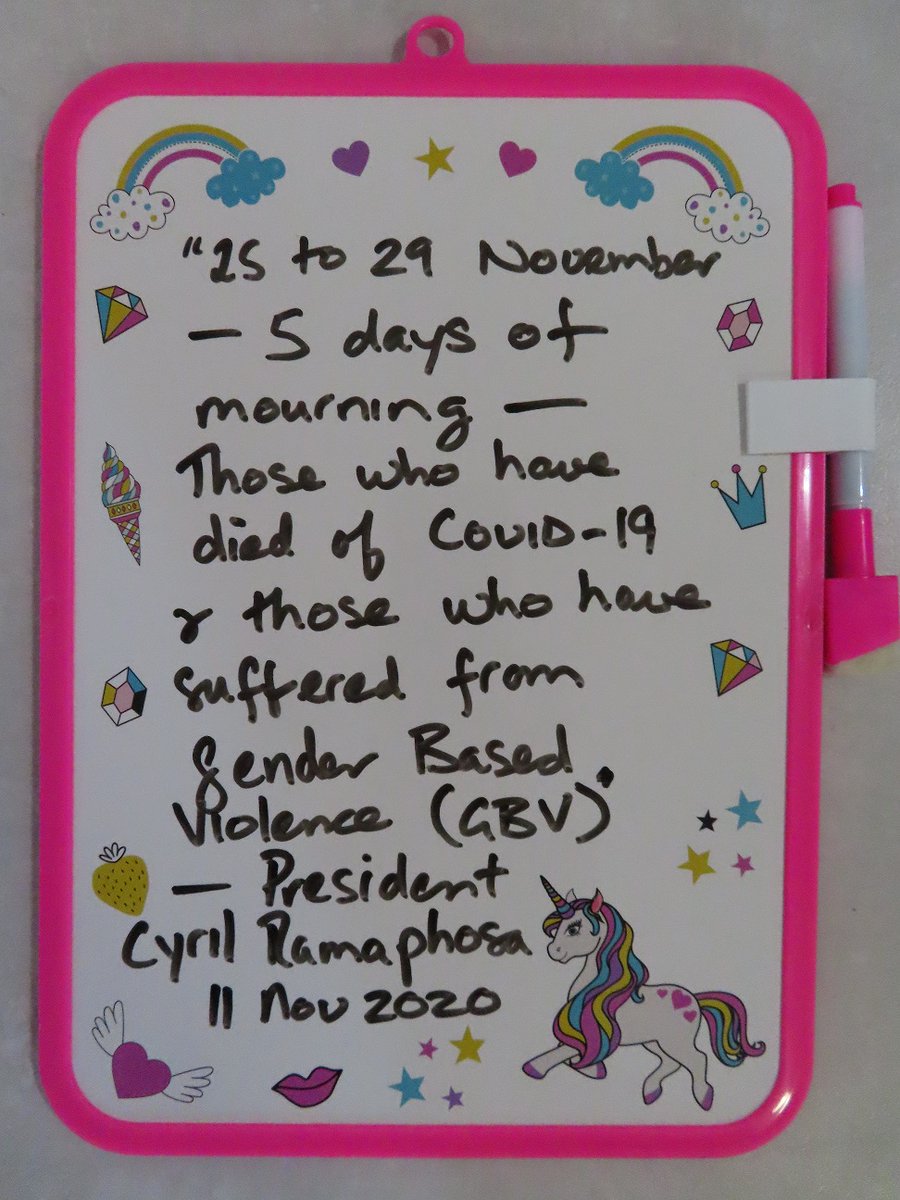 "25 to 29 November
— 5 days of
mourning —
Those who have
died of COVID-19
& those who have
suffered from
Gender Based
Violence (GBV)"
— President
Cyril Ramaphosa
11 Nov 2020